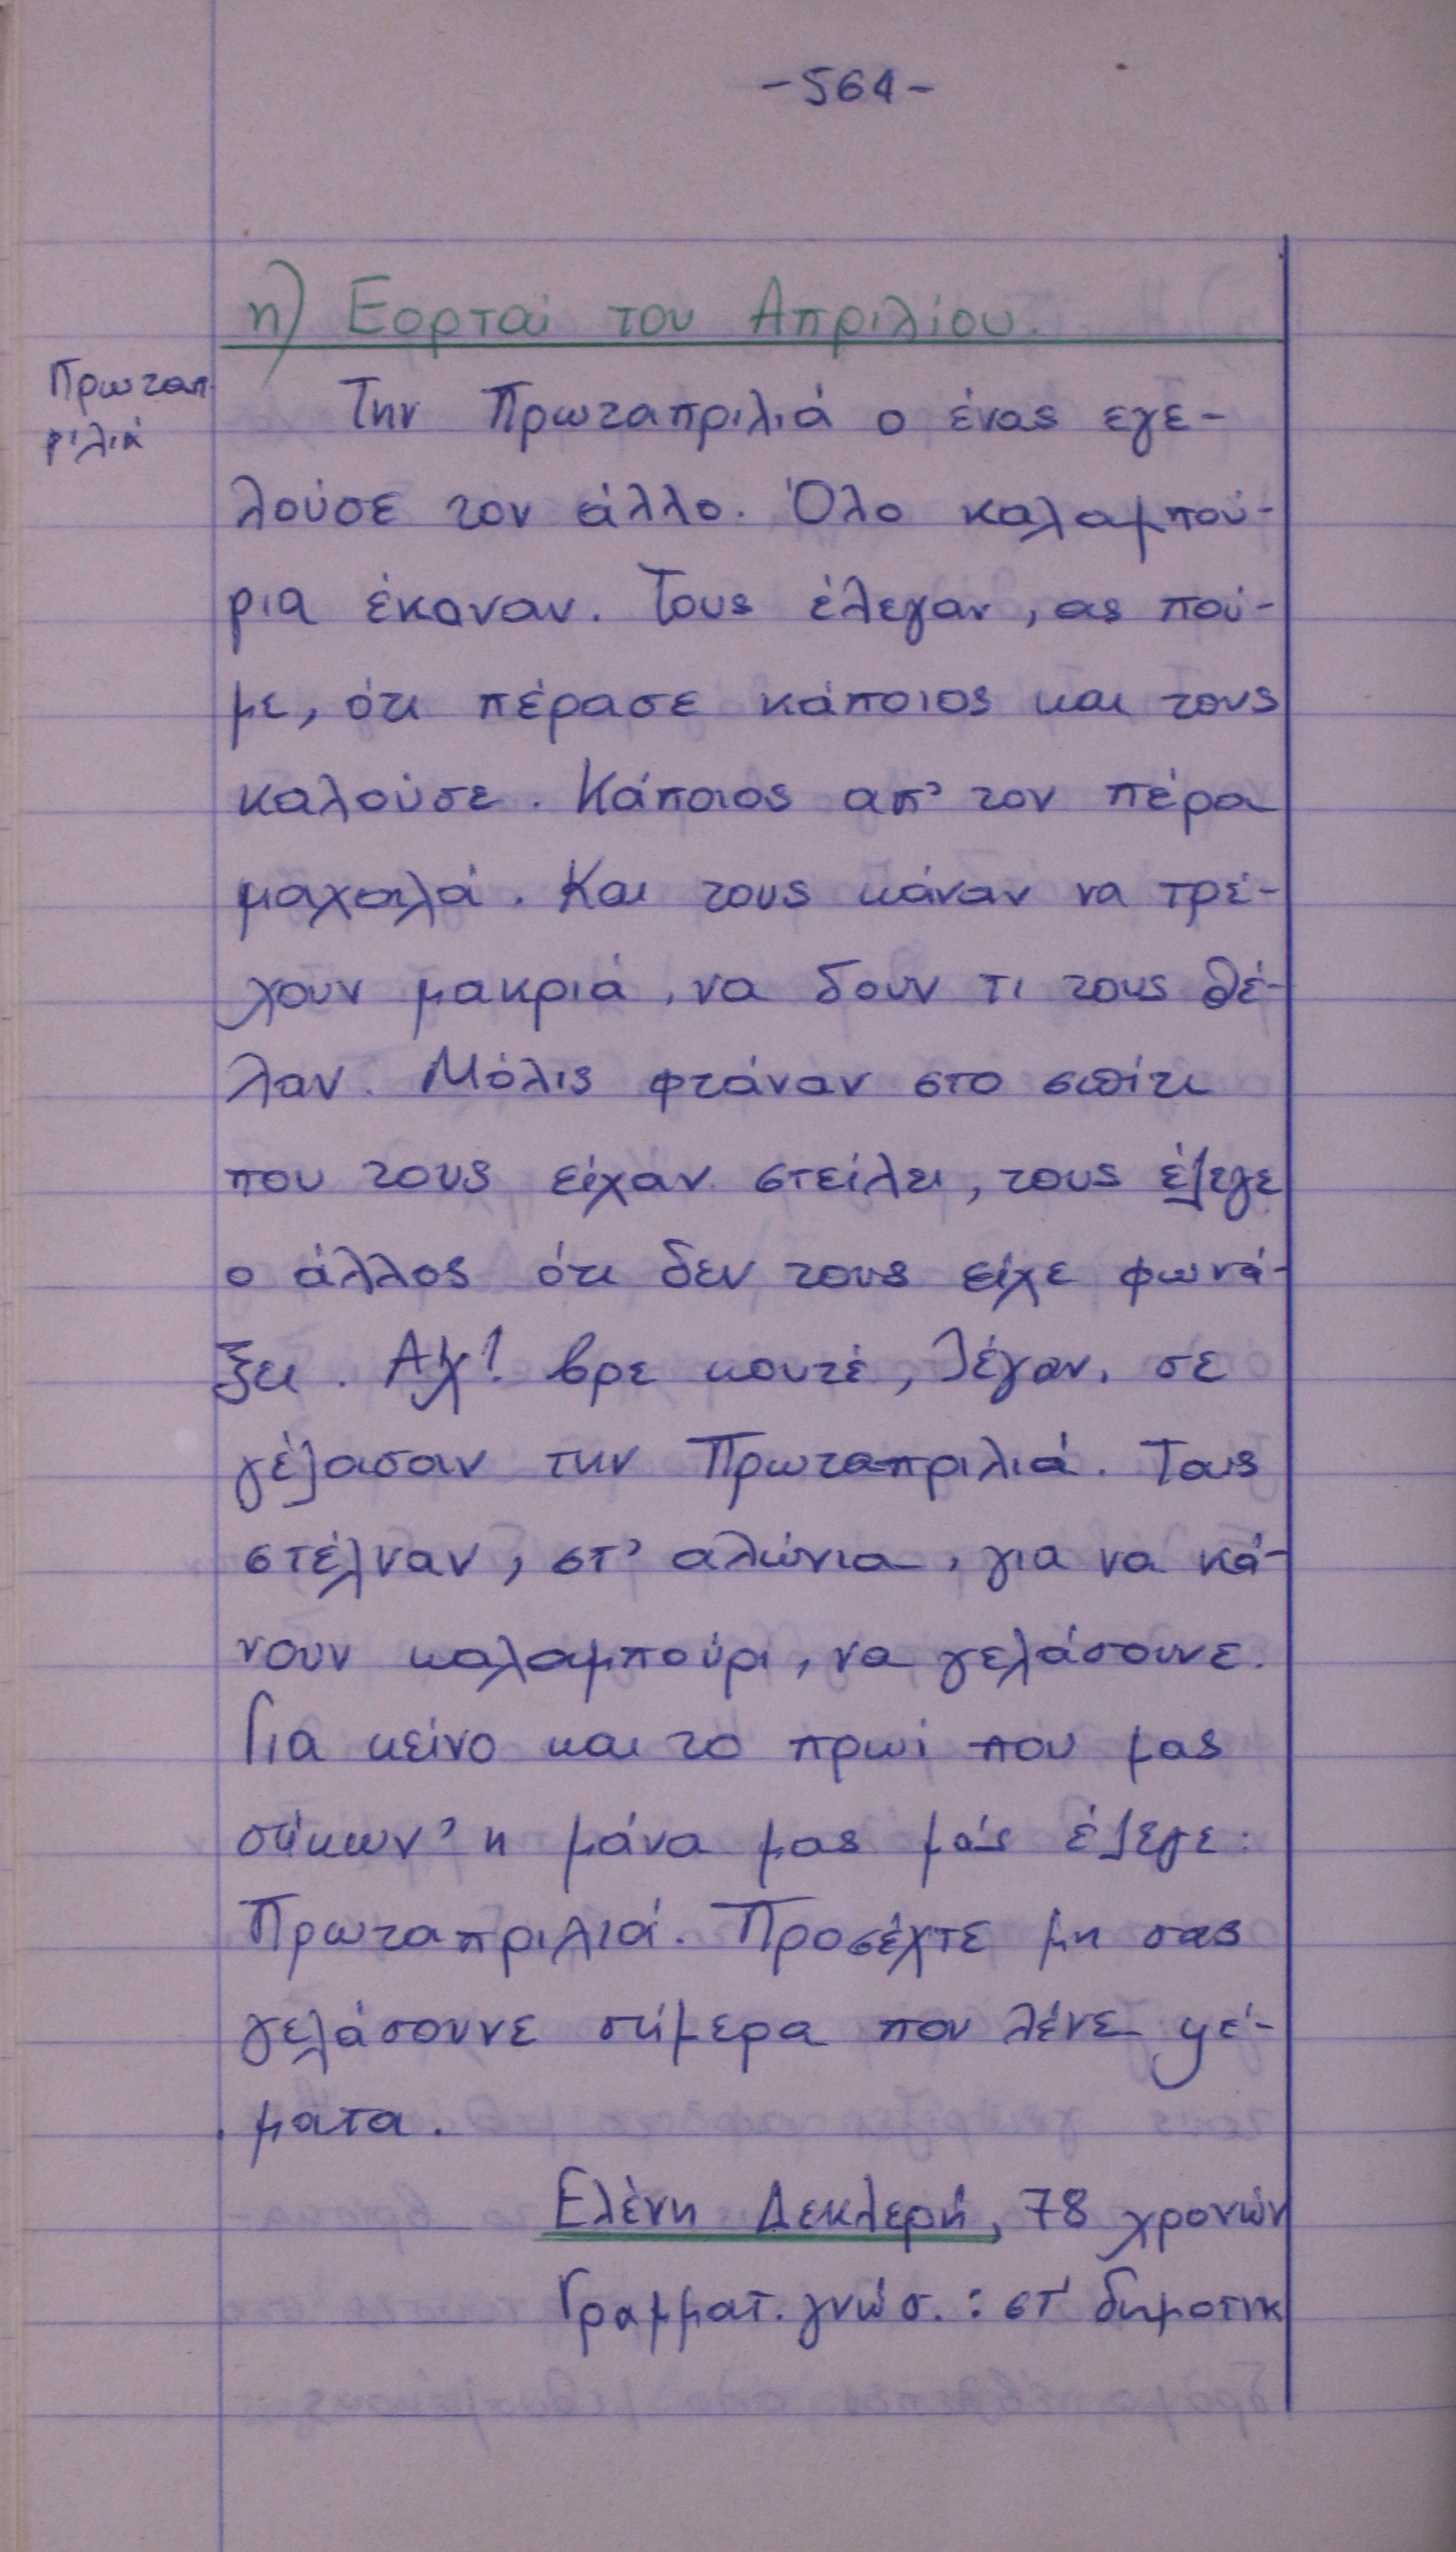 -564-
η) Εορταί του Απριλίου.
Πρωταπ-
ριλιά
Την Πρωταπριλιά ο ένας εγε-
λούσε τον άλλο. Όλο καλαμπού-
ρια έκαναν. Τους έλεγαν, ας πού-
με, ότι πέρασε κάποιος και τους
καλούσε. Κάποιος απ' τον πέρα
μαχαλά. Και τους κάναν να τρέ-
χουν μακριά, να δουν τι τους θέ-
λαν. Μόλις φτάναν στο σπίτι
που τους είχαν στείλει, τους έλεγε
ο άλλος ότι δεν τους είχε φωνά-
ξει. Αχ! βρε κουτέ, λέγαν, σε
γέλασαν την Πρωταπριλιά. Τους
στέλναν, στ' αλώνια, για να κά-
νουν καλαμπούρι, να γελάσουνε.
Για κείνο και το πρωί που μας
σήκων' η μάνα μας μάς έλεγε:
Πρωταπριλιά. Προσέχτε μη σας
γελάσουνε σήμερα που λένε ψέ-
ματα.
Ελένη Δεκλερή, 78 χρονών
Γραμματ. γνώσ. : στ' δημοτικ